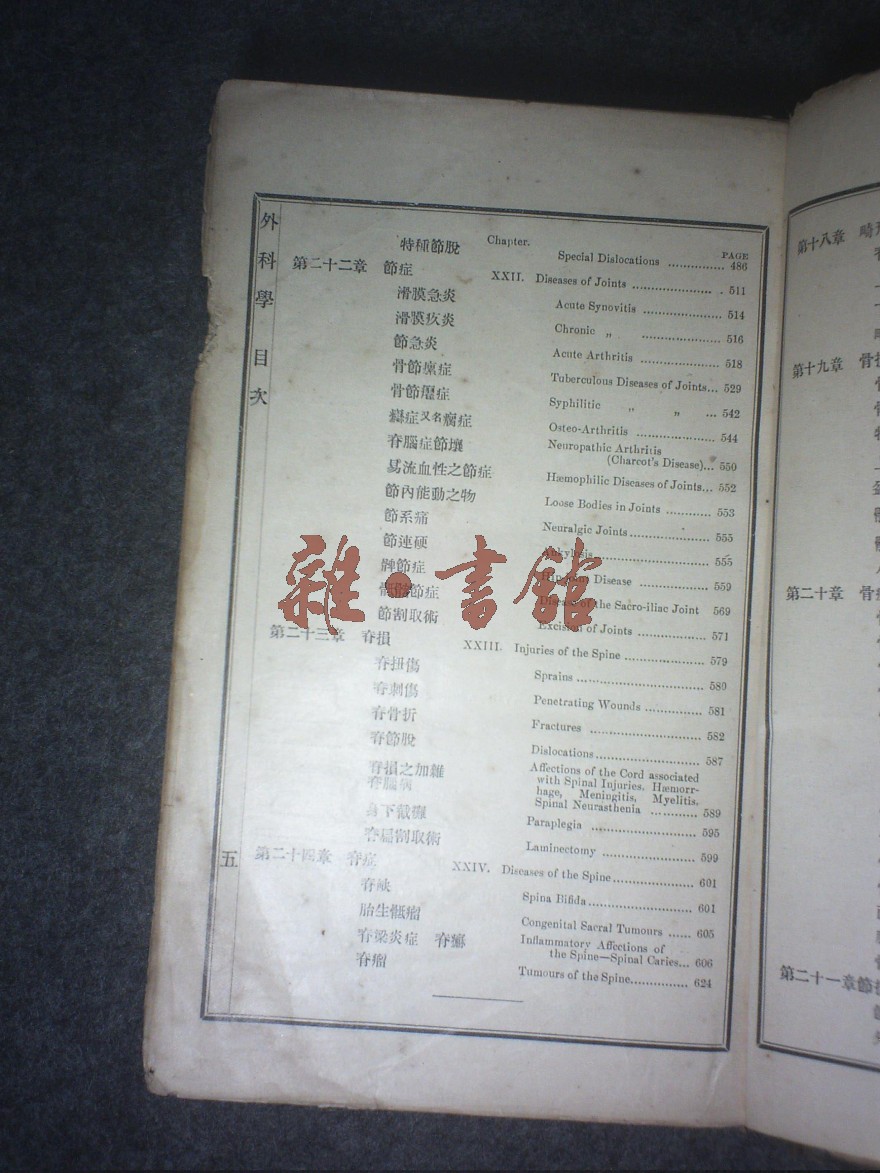 外科學 目次
五
Chapter.
PAGE
特種節脫 Special Dislocations ............... 486
第二十二章 節症 XXII. Diseases of Joints ..................... . 511
滑膜急炎 Acute Synovitis ..................... 514
滑膜疚炎 Chronic „ ..................... 516
節急炎 Acute Arthritis ..................... 518
骨節瘰症 Tuberculous Diseases of Joints... 529
骨節癧症 Syphilitic „ „ ... 542
又名 Osteo-Arthritis ..................... 544
脊腦症節壞 Neuropathic Arthritis
(Charcot's Disease)... 550
易流血性之節症 Hæmophilic Diseases of Joints... 552
節內能動之物 Loose Bodies in Joints ............ 553
節系痛 Neuralgic Joints..................... 555
節連硬 Ankylosis ..................... 555
節症 Disease ..................... 559
節症 Disease of the Sacro-iliac Joint 569
節割取術 Excision of Joints ............... 571
第二十三章 脊損 XXIII. Injuries of the Spine ..................... 579
脊扭傷 Sprains ........................... 580
脊刺傷 Penetrating Wounds ............... 581
脊骨折 Fractures ........................... 582
脊節脫 Dislocations..................... 587
脊損之加雜 Affections of the Cord associated
脊腦病 with Spinal Injuries. Hæmorr-
hage, Meningitis, Myelitis,
Spinal Neurasthenia ............ 589
身下截癱 Paraplegia ........................ 595
脊扁割取術 Laminectomy ..................... 599
第二十四章 脊症 XXIV. Diseases of the Spine..................... 601
脊缺 Spina Bifida........................... 601
胎生骶瘤 Congenital Sacral Tumours ...... 605
脊梁炎症 脊癆 Inflammatory Affections of
the Spine—Spinal Caries... 606
脊瘤 Tumours of the Spine............... 624
雜·書館
第十八章
第十九章
第二十章
第二十一章